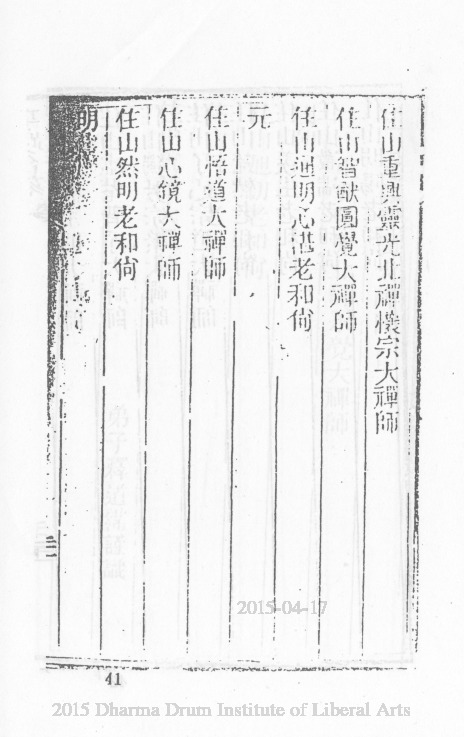 住山重興靈光北禪懷宗大禪師
住山智猷圓覺大禪師
住山迴明心湛老和尙
元
住山悟道大禪師
住山心鏡大禪師
住山然明老和尙
明
二
41
2015-04-17
2015 Dharma Drum Institute of Liberal Arts